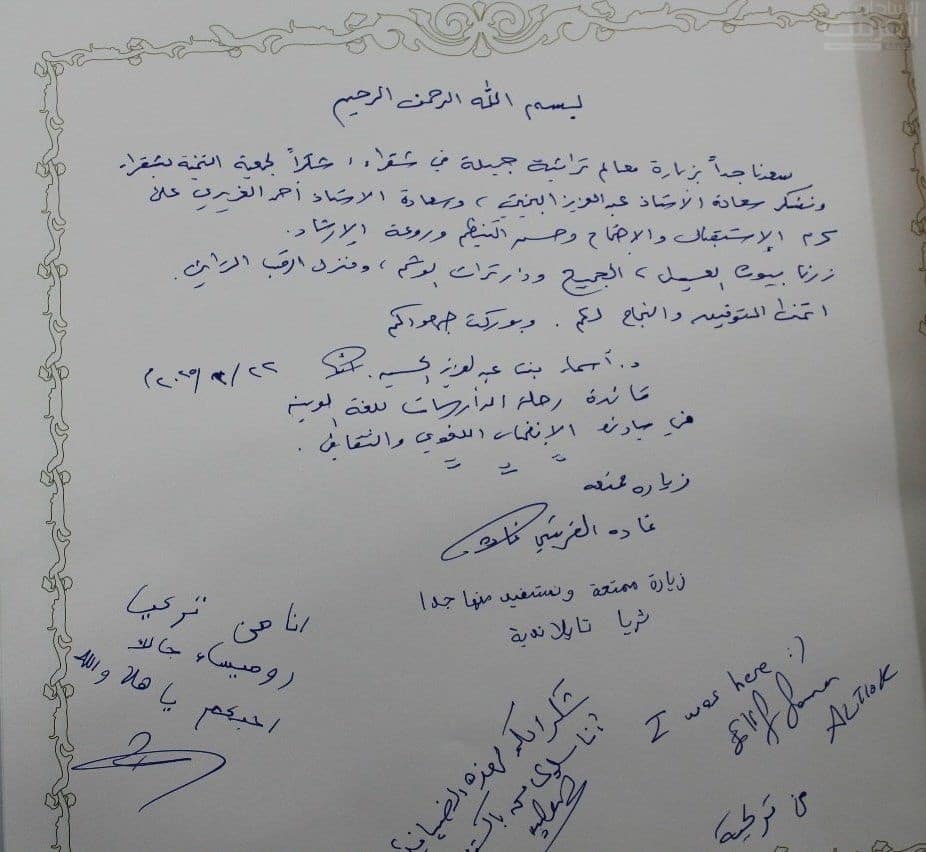 بسم الله الرحمن الرحيم
سعدنا جداً بزيارة معالم تراثية جميلة في شقراء، شكراً لجمعية التنمية بشقراء
ونشكر سعادة الأستاذ عبدالعزيز، وسعادة الاستاذ أحمد على
كرم الإستقبال والاهتمام وحسن التنظيم وروعة الإرشاد.
زرنا بيوت العسيل، الجميح ودار تراث الوشم، ومنزل.
اتمنى التوفيق والنجاح لكم. وبوركت جهودكم
د. أسماء بنت عبدالعزيز الحسين. ٢٢/٢/٢٠٢٥م
قائدة رحلة الدارسات للغة العربية
في الإنغماس اللغوي والثقافي.
زياره ممتعه
غاده القريشي
زيارة ممتعة ونستفيد منها جدا
ثريا تايلاندية
انا من تركيا
روميساء
احبكم يا هلا والله
شكرا لكم لهذه الضيافة
أنا سلوى من باكستان
I was here :)
Elif
من تركيا